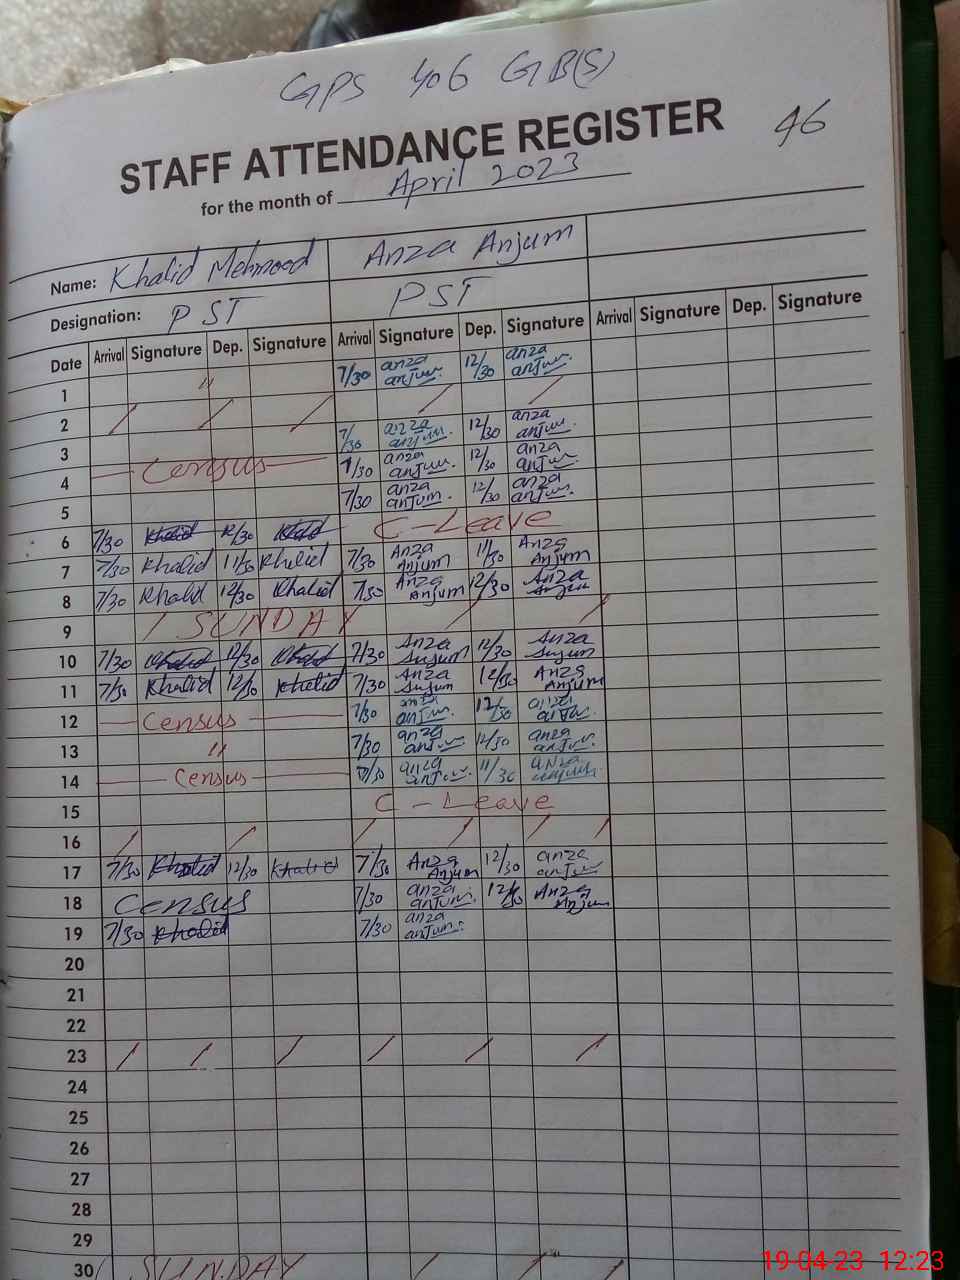 GPS 406 GB(S)
46
STAFF ATTENDANCE REGISTER
for the month of April 2023
Name: Khalid Mehmood Anza Anjum
Designation: PST PST
Date Arrival Signature Dep. Signature Arrival Signature Dep. Signature Arrival Signature Dep. Signature
1 " 7/30 anza anjum. 12/30 anza anjum.
2 / / / / /
3 7/30 anza anjum. 12/30 anza anjum.
4 Census 7/30 anza anjum. 12/30 anza anjum.
5 7/30 anza anjum. 12/30 anza anjum.
6 7/30 Khalid 12/30 Khalid C-Leave
7 7/30 Khalid 11/30 Khalid 7/30 Anza Anjum 11/30 Anza Anjum
8 7/30 Khalid 12/30 Khalid 7/30 Anza Anjum 12/30 Anza Anjum
9 / SUNDAY / /
10 7/30 Khalid 12/30 Khalid 7/30 Anza Anjum 12/30 Anza Anjum
11 7/30 Khalid 12/30 Khalid 7/30 Anza Anjum 12/30 Anza Anjum
12 Census 7/30 anza anjum. 12/30 anza anjum.
13 " 7/30 anza anjum. 12/30 anza anjum.
14 Census 7/30 anza anjum. 11/30 anza anjum.
15 C-Leave
16 / / / / / /
17 7/30 Khalid 12/30 Khalid 7/30 Anza Anjum 12/30 anza anjum
18 Census 7/30 anza anjum. 12/30 Anza Anjum
19 7/30 Khalid 7/30 anza anjum.
20
21
22
23 / / / / / /
24
25
26
27
28
29
30 / SUNDAY / / /
19-04-23 12:23